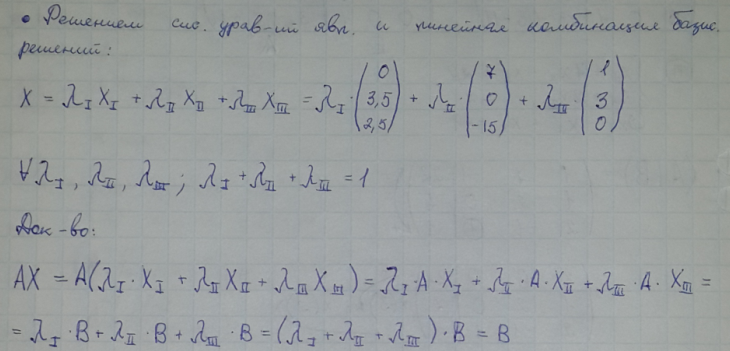 • Решением сис. урав-ий явл. и линейная комбинация базис.
решений:
X = λ_I X_I + λ_II X_II + λ_III X_III = λ_I · (0; 3,5; 2,5) + λ_II · (7; 0; -15) + λ_III · (1; 3; 0)
∀ λ_I, λ_II, λ_III; λ_I + λ_II + λ_III = 1
Док-во:
AX = A(λ_I · X_I + λ_II X_II + λ_III X_III) = λ_I · A · X_I + λ_II · A · X_II + λ_III · A · X_III =
= λ_I · B + λ_II · B + λ_III · B = (λ_I + λ_II + λ_III) · B = B